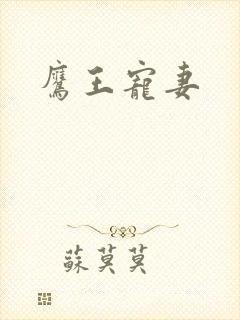 鷹王寵妻
蘇莫莫